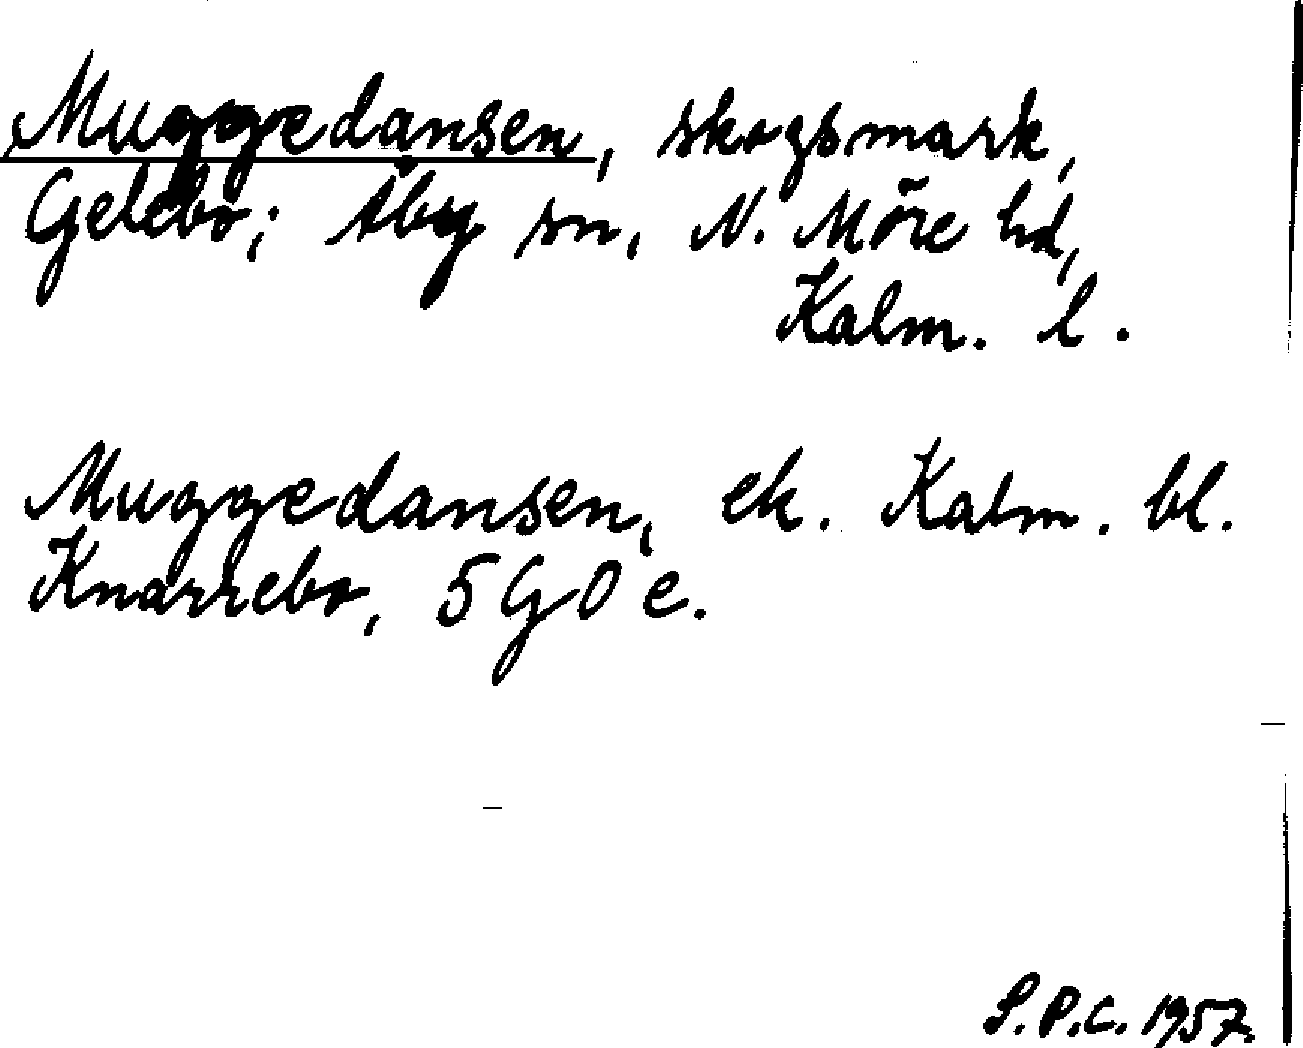 Muggedansen, skogsmark,
Gelebo; Åby sn, N. Möre hd,
Kalm. l.
Muggedansen, ek. Kalm. bl.
Knarrebo, 5 G O e.
S.P.C. 1957.